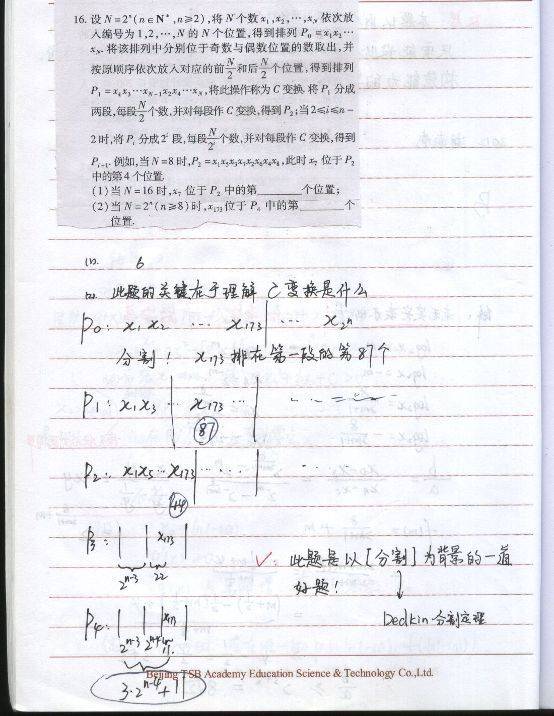 16. 设 N=2ⁿ(n∈N*,n≥2),将 N 个数 x₁,x₂,…,x_N 依次放
入编号为 1,2,…,N 的 N 个位置,得到排列 P₀=x₁x₂…
x_N. 将该排列中分别位于奇数与偶数位置的数取出,并
按原顺序依次放入对应的前N/2和后N/2个位置,得到排列
P₁=x₁x₃…x_{N-1}x₂x₄…x_N,将此操作称为 C 变换. 将 P₁ 分成
两段,每段N/2个数,并对每段作 C 变换,得到 P₂;当 2≤i≤n-
2时,将 Pᵢ 分成 2ⁱ 段,每段N/2ⁱ个数,并对每段作 C 变换,得到
P_{i+1}. 例如,当 N=8 时,P₂=x₁x₅x₃x₇x₂x₆x₄x₈,此时 x₇ 位于 P₂
中的第 4 个位置.
(1)当 N=16 时,x₇ 位于 P₂ 中的第______个位置;
(2)当 N=2ⁿ(n≥8)时,x₁₇₃位于 P₄ 中的第______个
位置.
(1). 6
(2). 此题的关键在于理解 C变换是什么
P₀: x₁ x₂ … x₁₇₃ | … x_{2ⁿ}
分割! x₁₇₃ 排在第一段的第87个
P₁: x₁x₃ … x₁₇₃ … |
87
P₂: x₁x₅ … x₁₇₃ | … |
44
P₃: | | x₁₇₃ |
2ⁿ⁻³ 22
✓: 此题是以[分割]为背景的一道
好题!
↓
Dedkin 分割定理
P₄: | | | x₁₇₃ |
2ⁿ⁻³ 2ⁿ⁻⁴ 11.
Beijing TSB Academy Education Science & Technology Co.,Ltd.
3·2ⁿ⁻⁴+11